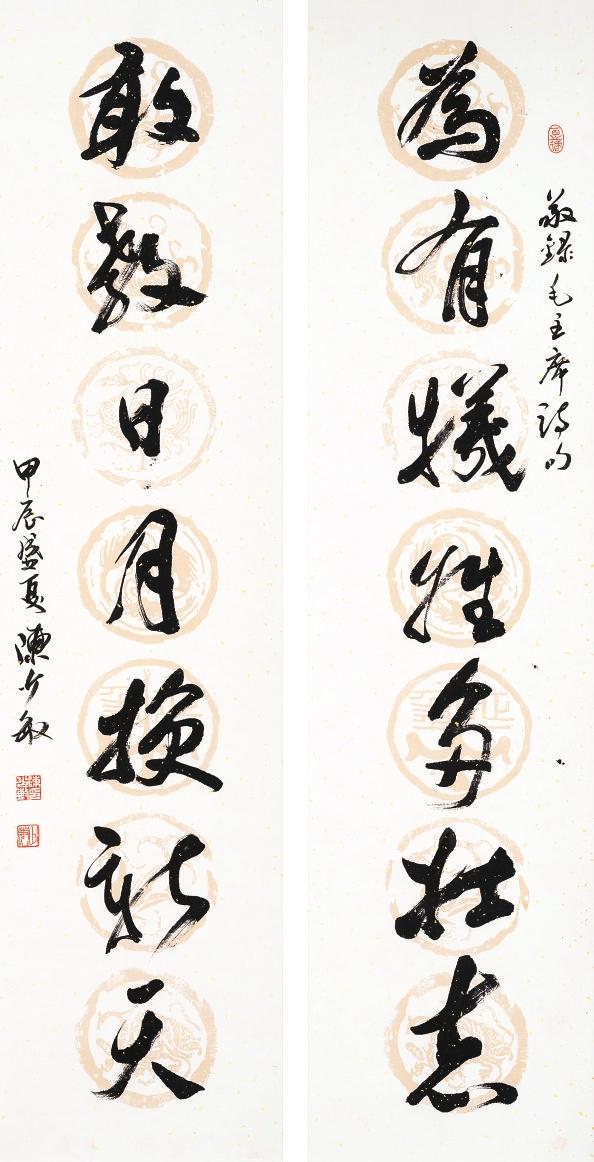 敬録毛主席詩句
為有犧牲多壯志
敢教日月換新天
甲辰盛夏陳少敏